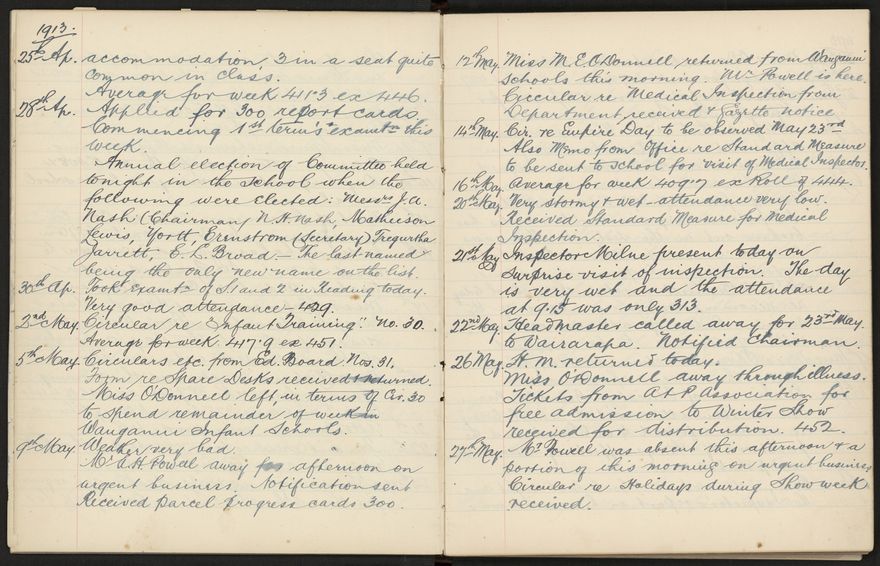 1913.
25th Ap. accommodation, 3 in a seat quite
common in class.
Average for week 417.3 ex 446.
28th Ap. Applied for 300 report cards.
Commencing 1st term's examtn this
week.
Annual election of Committee held
tonight in the school when the
following were elected: Messrs J.A.
Nash (Chairman) N.H. Nash, Mathieson
Lewis, York, Ernstrom (Secretary) Tregurtha
Jarrett, E. L. Broad. - The last named
being the only new name on the list.
30th Ap. Took examtn of S1 and 2 in Reading today.
Very good attendance - 429.
2nd May. Circular re "Infant Training". No. 30.
Average for week 417.9 ex 451.
5th May. Circulars etc. from Ed. Board Nos. 31.
Form re Spare Desks received & returned.
Miss O'Donnell left, in terms of Cir. 30
to spend remainder of week in
Wanganui Infant Schools.
9th May. Weather very bad.
Mr A H Powell away afternoon on
urgent business, Notification sent
Received parcel progress cards 300.
12th May. Miss M.E. O'Donnell returned from Wanganui
schools this morning. Mr Powell is here.
Circular re Medical Inspection from
Department received & Gazette notice
14th May. Cir. re Empire Day to be observed May 23rd
Also Memo from Office re Standard Measure
to be sent to school for visit of Medical Inspector.
16th May. Average for week 409.7 ex Roll of 444.
20th May. Very stormy & wet - attendance very low.
Received Standard Measure for Medical
Inspection.
21st May Inspector Milne present today on
surprise visit of inspection. The day
is very wet and the attendance
at 9.15 was only 313.
22nd May Headmaster called away for 23rd May.
to Wairarapa. Notified Chairman.
26 May. H. M. returned today.
Miss O'Donnell away through illness.
Tickets from A & P Association for
free admission to Winter Show
received for distribution. 452.
27th May. Mr Powell was absent this afternoon & a
portion of this morning on urgent business
Circular re Holidays during Show week
received.